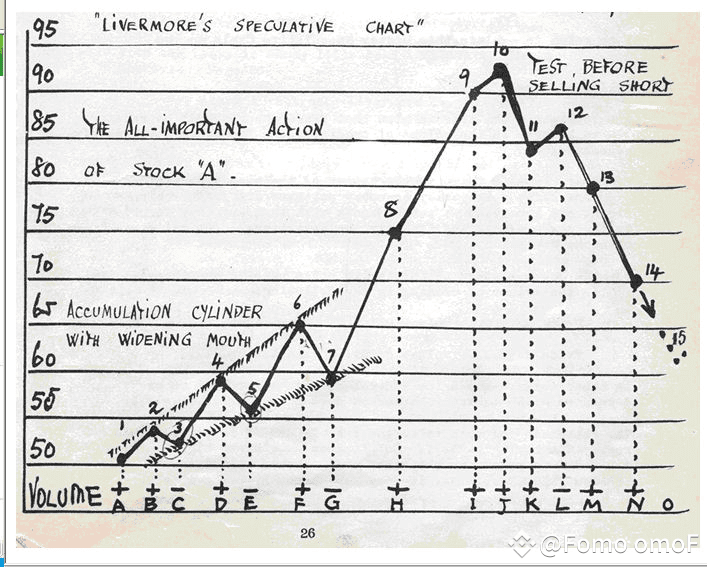 95 "LIVERMORE'S SPECULATIVE CHART"
10
90 9 TEST BEFORE
SELLING SHORT
85 THE ALL-IMPORTANT ACTION 11 12
80 OF STOCK "A".
13
75 8
70 14
65 ACCUMULATION CYLINDER 6
WITH WIDENING MOUTH 15
60 4 7
55 5
1 2 3
50
VOLUME + + - + - + - + + + + - + +
A B C D E F G H I J K L M N O
26
@Fomo omoF